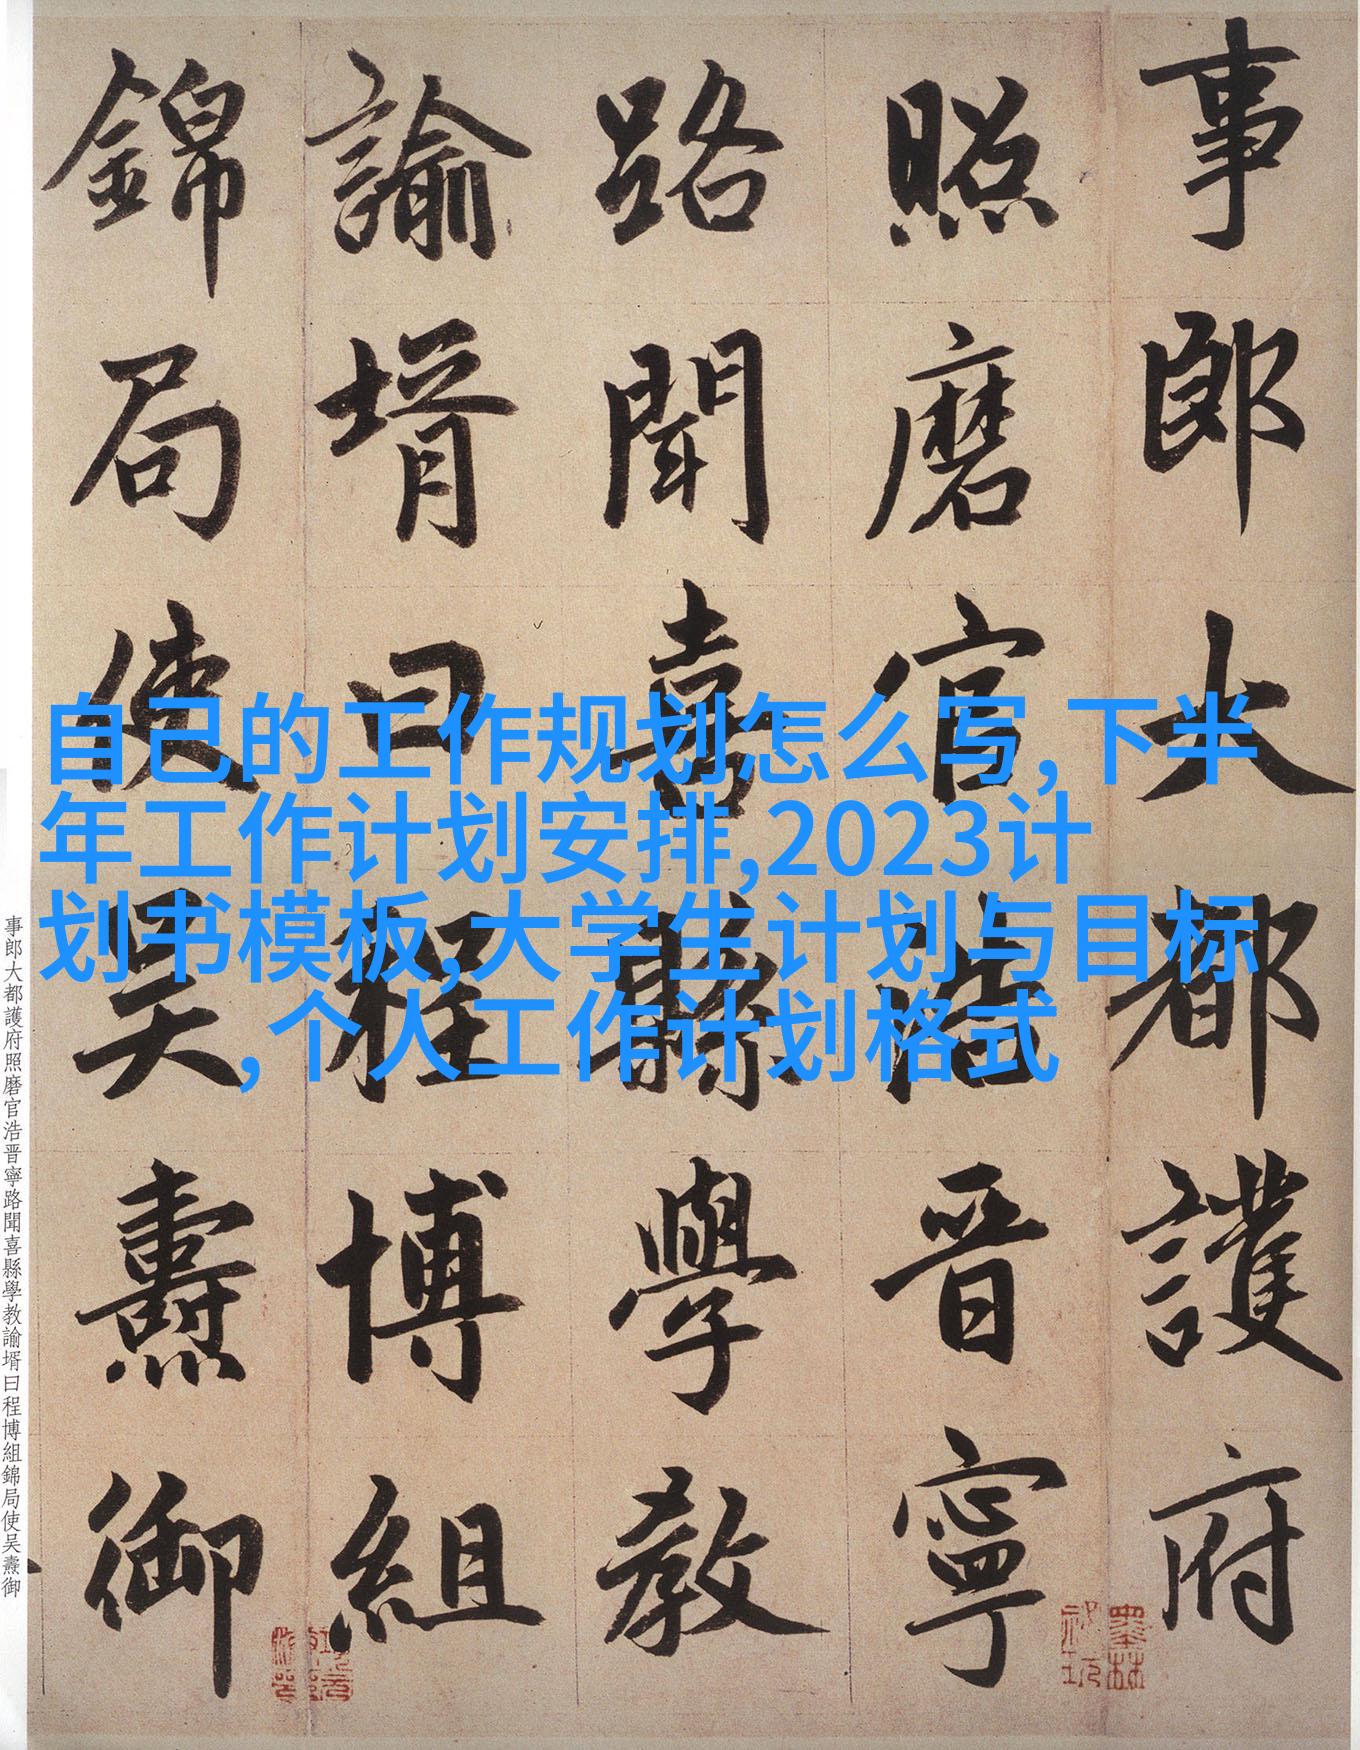 事郎大都護府
照磨官浩晋寧
路聞喜縣學教
諭壻曰程博組
錦局使吴燾御
自己的工作规划怎么写,下半
年工作计划安排,2023计
划书模板,大学生计划与目标
,个人工作计划格式
事郎大都護府照磨官浩晋寧路聞喜縣學教諭壻曰程博組錦局使吴燾御